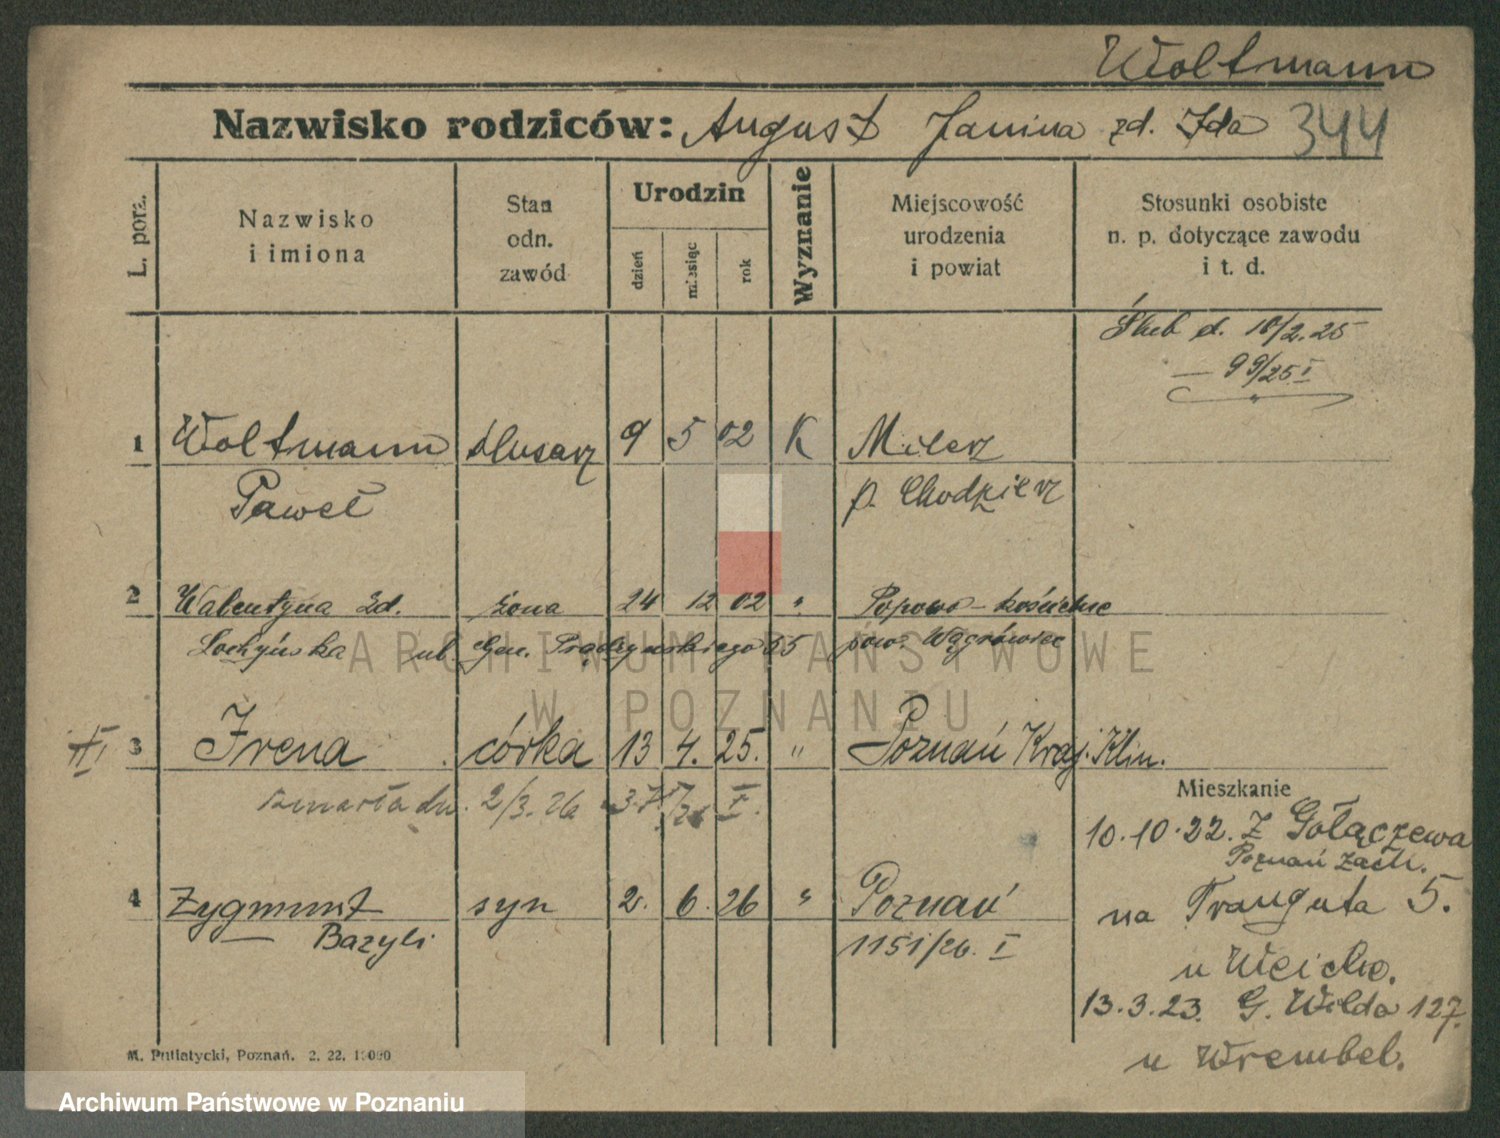 Woltmann
Nazwisko rodziców: August Janina zd. Ida 344
L. porz. Nazwisko i imiona Stan odn. zawód Urodzin dzień miesiąc rok Wyznanie Miejscowość urodzenia i powiat Stosunki osobiste n. p. dotyczące zawodu i t. d.
Ślub d. 10/2.25
— 99/25 I
1 Woltmann ślusarz 9 5 02 K Milcz
Paweł p. Chodzież
2 Walentyna zd. żona 24 12 02 " Popowo-kościelne
Lochyńska ul Gen. Prądzyńskiego 55 pow. Wągrówiec
3 Irena córka 13 4. 25. " Poznań Kraj. Klin.
zmarła dn. 2/3. 26
Mieszkanie
10.10.22. Z Gołączewa
Poznań zach.
4 Zygmunt syn 2. 6. 26 " Poznań
Bazyli 1151/26. I
na Trauguta 5.
u
13.3.23. G. Wilda 127.
u Wrembel.
M. Putiatycki, Poznań. 2. 22.
ARCHIWUM PAŃSTWOWE
W POZNANIU
Archiwum Państwowe w Poznaniu